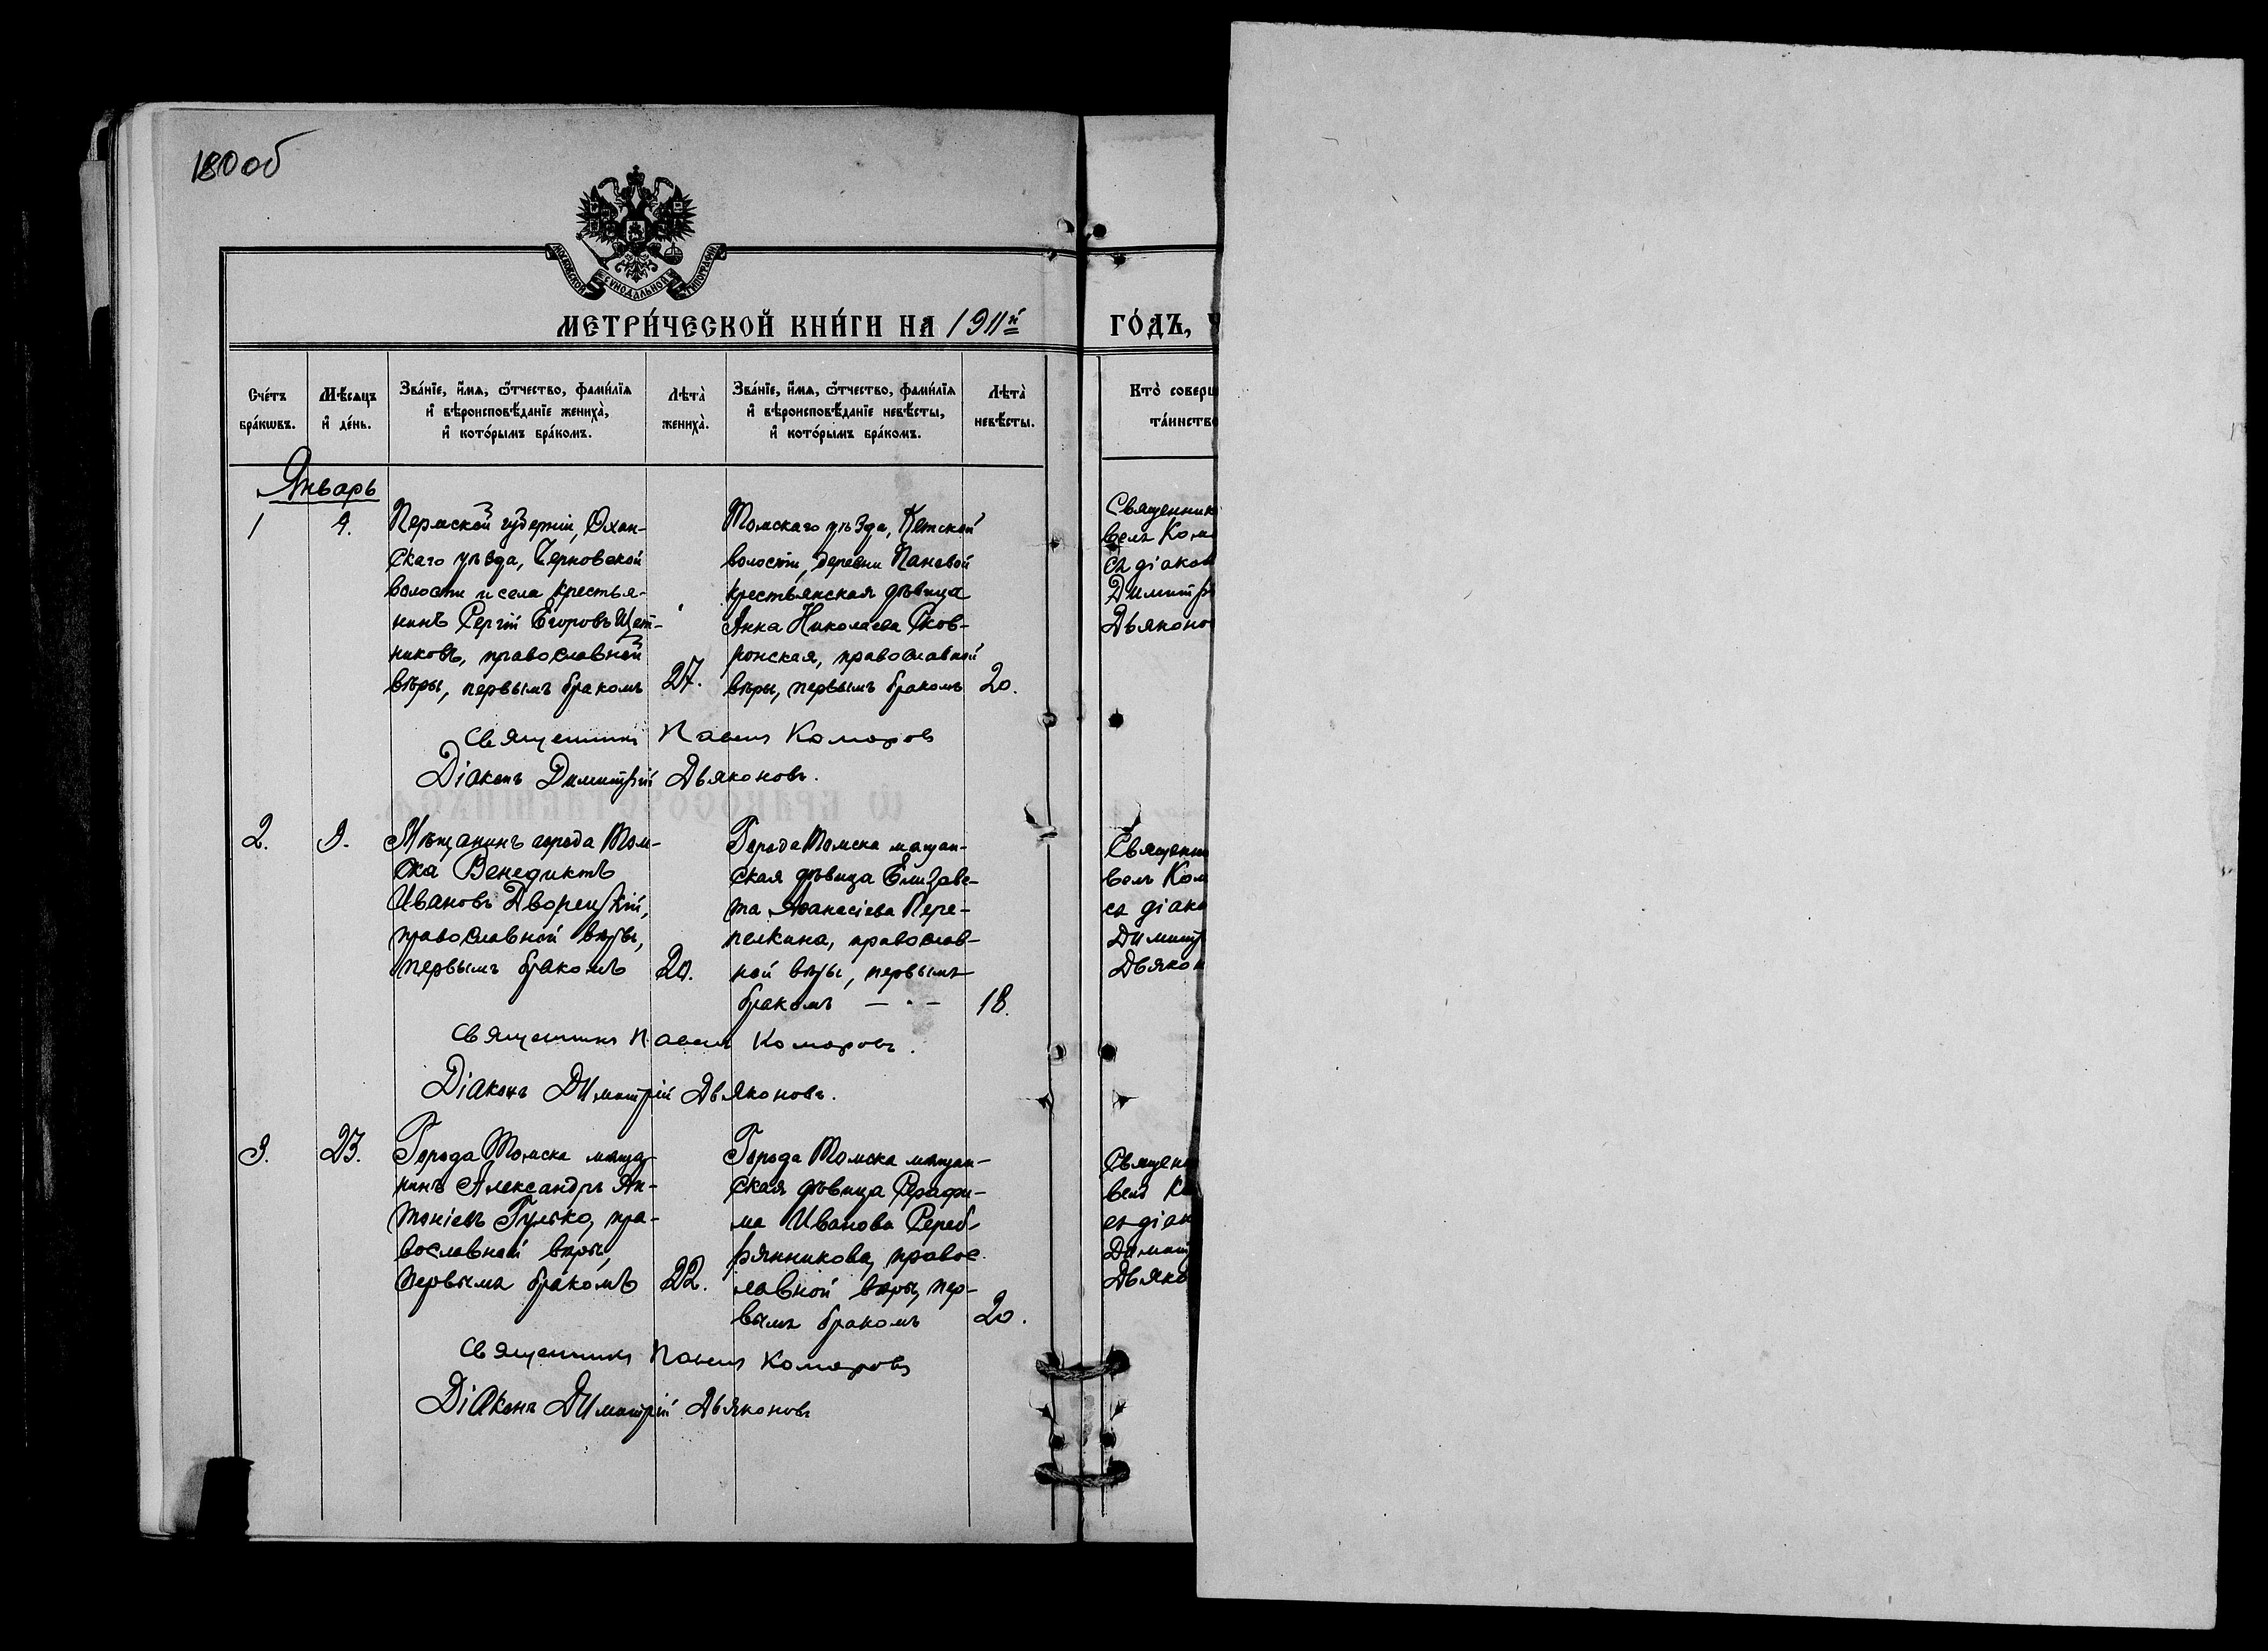 180 об
МОСКОВСКОЙ СѴНОДАЛЬНОЙ ТИПОГРАФІИ
МЕТРИ́ЧЕСКОЙ КНИ́ГИ НА 1911й
ГО́ДЪ,
Сче́тъ бра́кѡвъ.
Мѣ́сяцъ и҆ де́нь.
Зва́нїе, и҆́мѧ, ѻ҆́тчество, фами́лїѧ
и҆ вѣроисповѣ́данїе жениха̀,
и҆ кото́рымъ бра́комъ.
Лѣта̀ жениха̀.
Зва́нїе, и҆́мѧ, ѻ҆́тчество, фами́лїѧ
и҆ вѣроисповѣ́данїе невѣ́сты,
и҆ кото́рымъ бра́комъ.
Лѣта̀ невѣ́сты.
Кто̀ соверш
та́инство
Январь
1
9.
Пермской губерніи, Охан-
скаго уѣзда, Черновской
волости и села крестья-
нинъ Сергій Егоровъ Щет-
никовъ, православной
вѣры, первымъ бракомъ
27.
Томскаго уѣзда, Кетской
волости, деревни Пановой
крестьянская дѣвица
Анна Николаева Сков-
ронская, православной
вѣры, первымъ бракомъ
20.
Священник
велъ Ком
съ діакон
Димитрі
Дьяконо
Священникъ Павелъ Комаровъ
Діаконъ Димитрій Дьяконовъ.
2.
9.
Мѣщанинъ города Том-
ска Венедиктъ
Ивановъ Дворецкій,
православной вѣры,
первымъ бракомъ
20.
Города Томска мѣщан-
ская дѣвица Елизаве-
та Аѳанасіева Пере-
пелкина, православ-
ной вѣры, первымъ
бракомъ — " —
18.
Священни
велъ Ком
съ діако
Димитр
Дьякон
Священникъ Павелъ Комаровъ.
Діаконъ Димитрій Дьяконовъ.
3.
23.
Города Томска мѣща-
нинъ Александръ Ан-
тоніевъ Гулько, пра-
вославной вѣры,
первымъ бракомъ
22.
Города Томска мѣщан-
ская дѣвица Серафи-
ма Иванова Сереб-
рянникова, правос-
лавной вѣры, пер-
вымъ бракомъ
20.
Священ
велъ К
съ діак
Димит
Дьяко
Священникъ Павелъ Комаровъ
Діаконъ Димитрій Дьяконовъ